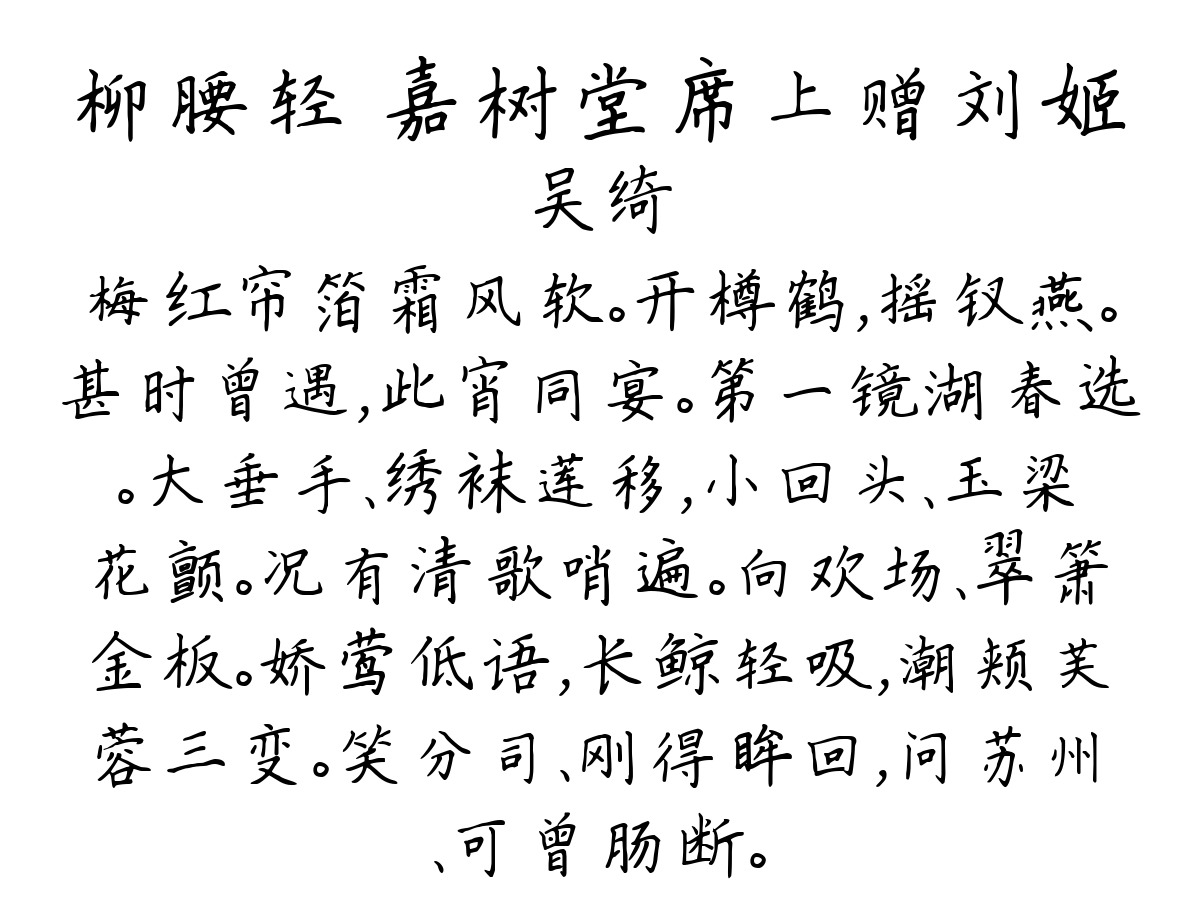 柳腰轻 嘉树堂席上赠刘姬
吴绮
梅红帘箔霜风软。开樽鹤,摇钗燕。
甚时曾遇,此宵同宴。第一镜湖春选
。大垂手、绣袜莲移,小回头、玉梁
花颤。况有清歌哨遍。向欢场、翠箫
金板。娇莺低语,长鲸轻吸,潮颊芙
蓉三变。笑分司、刚得眸回,问苏州
、可曾肠断。